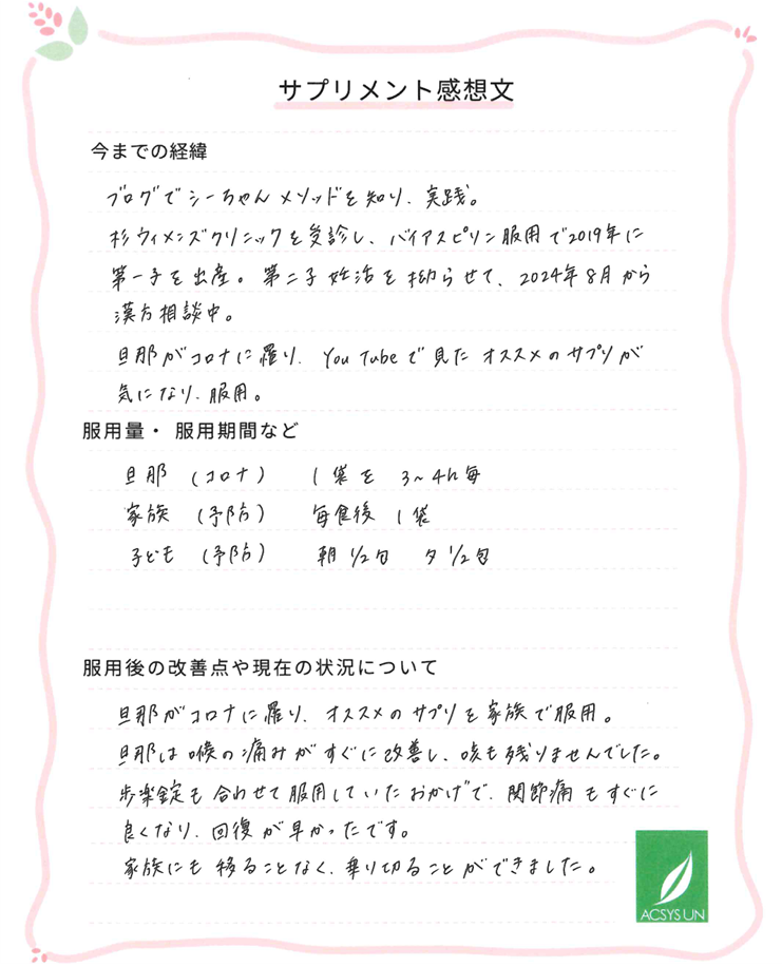 サプリメント感想文
今までの経緯
ブログでシーちゃんメソッドを知り、実践。
杉ウィメンズクリニックを受診し、バイアスピリン服用で2019年に
第一子を出産。第二子妊活を拗らせて、2024年8月から
漢方相談中。
旦那がコロナに羅り、YouTubeで見たオススメのサプリが
気になり、服用。
服用量・ 服用期間など
旦那 (コロナ) 1袋を 3~4h毎
家族 (予防) 毎食後 1袋
子ども (予防) 朝 1/2包 夕 1/2包
服用後の改善点や現在の状況について
旦那がコロナに羅り、オススメのサプリを家族で服用。
旦那は喉の痛みがすぐに改善し、咳も残りませんでした。
歩楽錠も合わせて服用していたおかげで、関節痛もすぐに
良くなり、回復が早かったです。
家族にも移ることなく、乗り切ることができました。
ACSYS UN